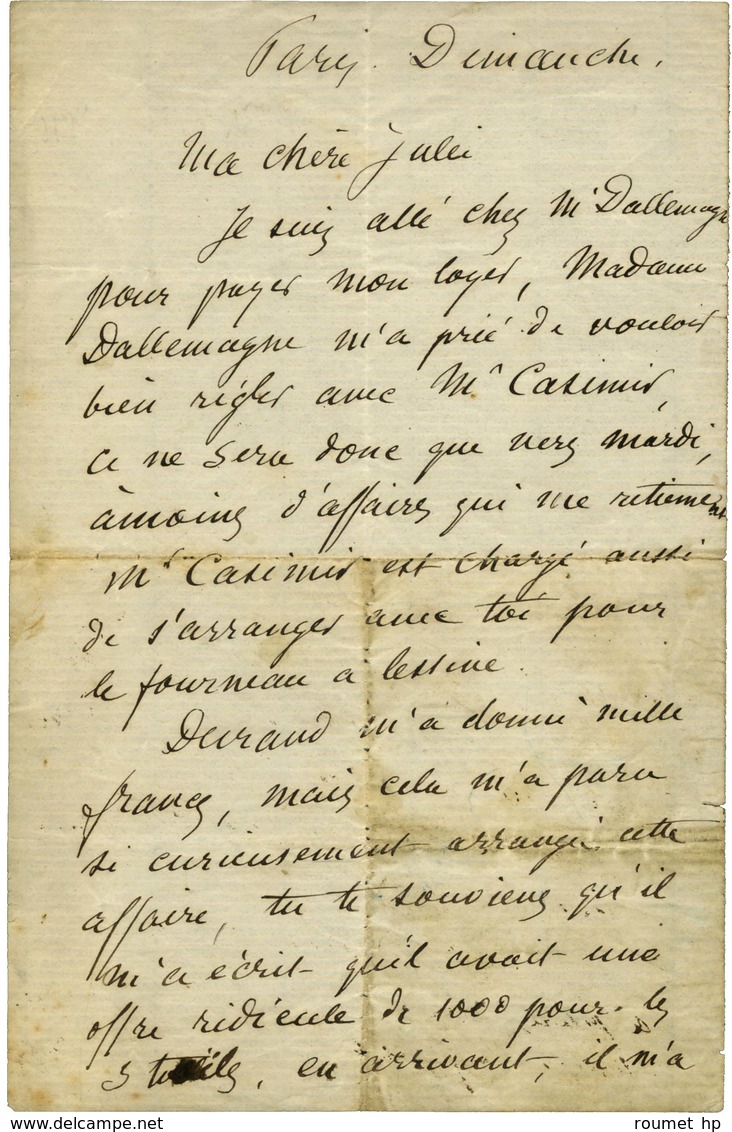 Paris. Dimanche.
Ma chère Julie
Je suis allé chez Mr Dallemagne
pour payer mon loyer, Madame
Dallemagne m'a prié de vouloir
bien régler avec Mr Casimir,
ce ne sera donc que vers mardi,
à moins d'affaires qui me retiennent
Mr Casimir est chargé aussi
de s'arranger avec toi pour
le fourneau a lessive.
Durand m'a donné mille
francs, mais cela m'a paru
si curieusement arrangé cette
affaire, tu te souviens qu'il
m'a écrit qu'il avait une
offre ridicule de 1000 pour les
5 toiles, en arrivant, il m'a
roumet hp